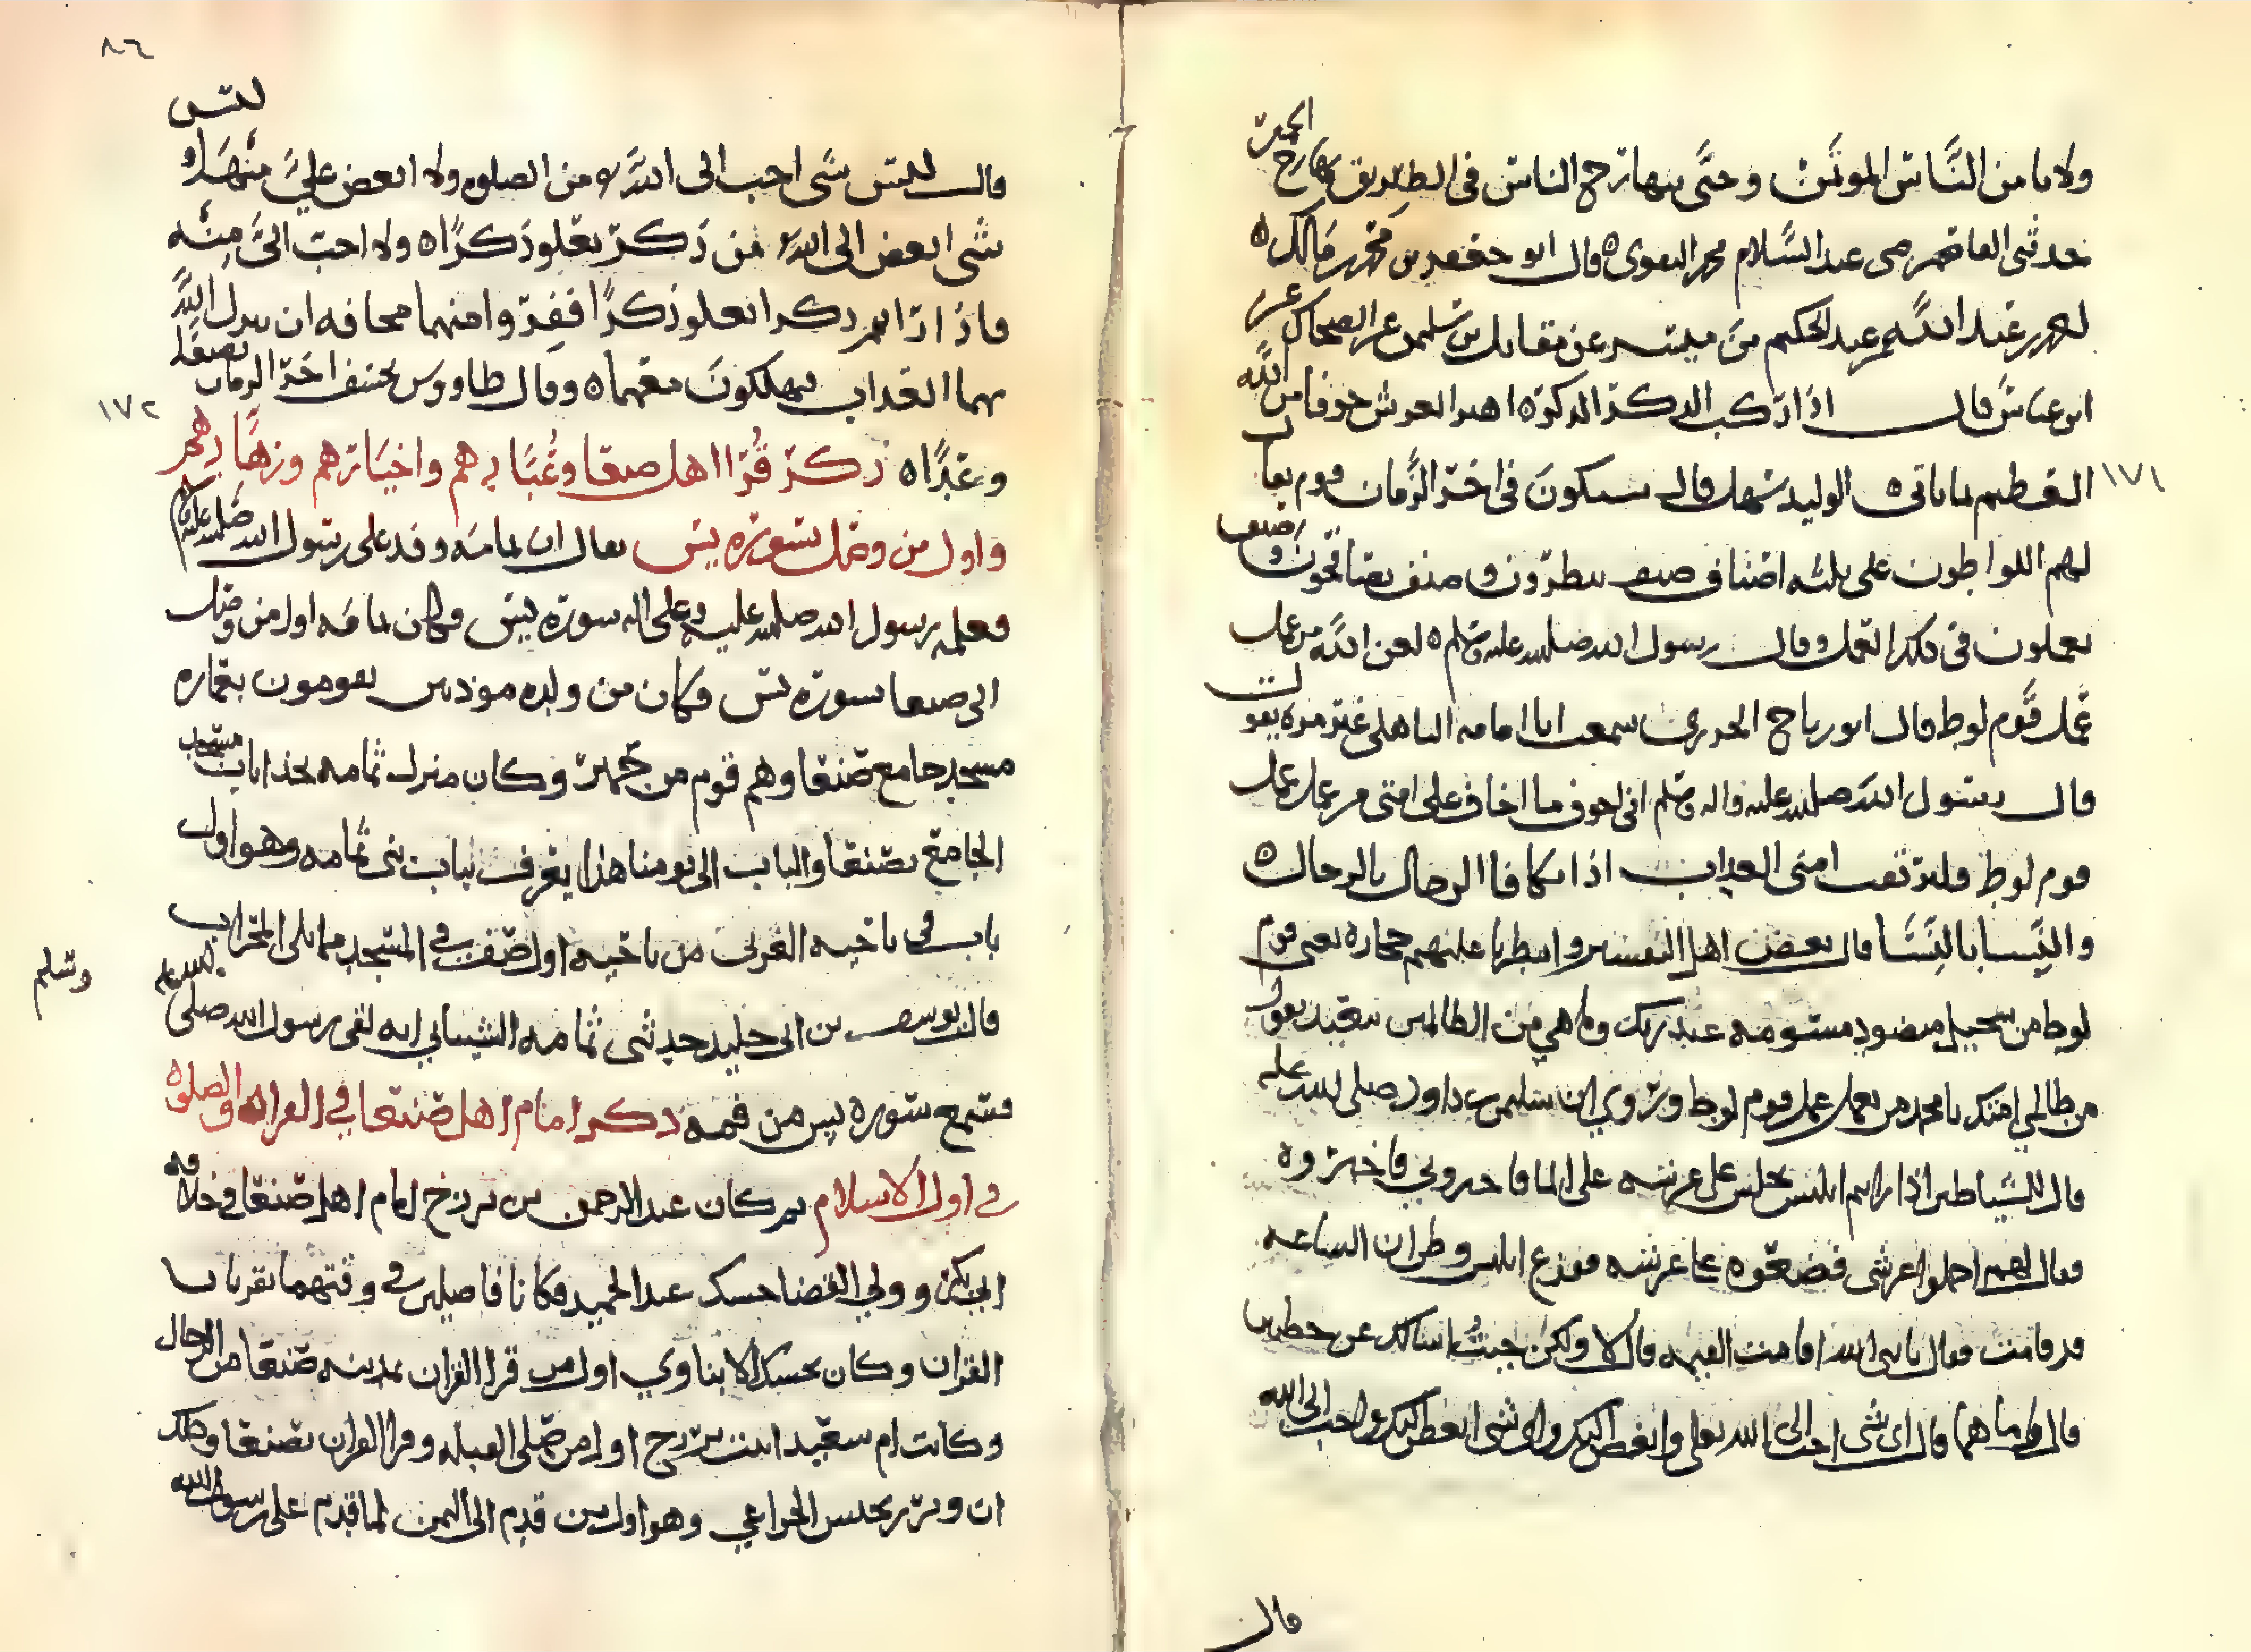 ولا يامن الناس الموتى وحتى يتهارج الناس في الطريق كتهارج الحمر
حدثني القاضي يحيى عبد السلام محمد النقوي قال ابو جعفر بن محمد بن مالك
عبد الله بن عبد الحكيم بن ميسره عن مقاتل بن سليمن عن الضحاك عن
ابن عباس قال اذا ركب الذكر الذكر اهتز العرش خوفا من الله
١٧١
الوليد سهل قال سيكون في اخر الزمان قوم يقال
لهم اللواطون على ثلثه اصناف صنف ينظرون وصنف يصافحون وصنف
يعملون في ذلك العمل وقال رسول الله صلى الله عليه وسلم لعن الله من عمل
عمل قوم لوط قال ابو رباح الجزري سمعت ابا امامه الباهلي غير مره يقول
قال رسول الله صلى الله عليه واله وسلم اني اخوف ما اخاف على امتي من عمل عمل
قوم لوط ولترتقب امتي العذاب اذا تكافا الرجال بالرجال
والنسا بالنسا قال بعض اهل التفسير وامطرنا عليهم حجارة يعني قوم
لوط من سجيل منضود مسومه عند ربك وما هي من الظالمين ببعيد يقول
من ظالمي امتك يا محمد من يعمل عمل قوم لوط وروي ان سليمن بن داود صلى الله عليه
قال للشياطين اذا رايتم ابليس يجلس على عرشه على الما فاخبروني فاخبروه
فقال لهم احملوا عرشي فضعوه على عرشه ففزع ابليس وظن ان الساعه
قد قامت فقال يا نبي الله اقامت القيمه قال لا ولكن جيت اسالك عن خطتين
قال وما هما قال اي شي احب الى الله تعلى وابغض اليك واي شي ابغض اليك واحب الى الله
قال
٨٦
ليس
قال ليس شي احب الى الله من الصلوه ولا ابغض علي منها ولا
شي ابغض الى الله من ذكر يعلو ذكرا ولا احب الي منه
فاذا رايتم ذكرا يعلو ذكرا ففر وا منهما مخافه ان ينزل الله
بهما العذاب فيهلكون معهما وقال طاووس يخسف اخر الزمان بصنعا
١٧٢
وعدن ذكر قرا اهل صنعا وعبادهم واخيارهم وزهادهم
واول من وصل بسورة يس يقال ان ثمامه وفد على رسول الله صلى الله عليه وسلم
فعلمه رسول الله صلى الله عليه وعلى اله سورة يس وكان ثمامه اول من وصل
الى صنعا سورة يس وكان من ولده موذنين يقومون بعمارة
مسجد جامع صنعا وهم قوم من حمير وكان منزل ثمامه بحذا باب مسجد
الجامع بصنعا والباب الى يومنا هذا يعرف بباب بني ثمامه وهو اول
باب في ناحيه الغربي من ناحيه اول صف في المسجد مما يلي المحراب
قال يوسف بن ابي خليد حدثني ثمامه الشيباني انه لقي رسول الله صلى الله عليه
وسلم
فسمع سورة يس من فمه ذكر امام اهل صنعا في القران والصلوة
في اول الاسلام ثم كان عبد الرحمن بن بزرج امام اهل صنعا في خلافه
ابي بكر وولي القضا حسك عبد الحميد فكانا فاضلين في وقتهما يقريان
القران وكان حسك الابناوي اول من قرا القران بمدينه صنعا من الرجال
وكانت ام سعيد ابنت بزرج اول من صلى القبله وقرا القران بصنعا وذلك
ان وبر بن يحنس الخزاعي وهو اول من قدم الى اليمن لما قدم على رسول الله